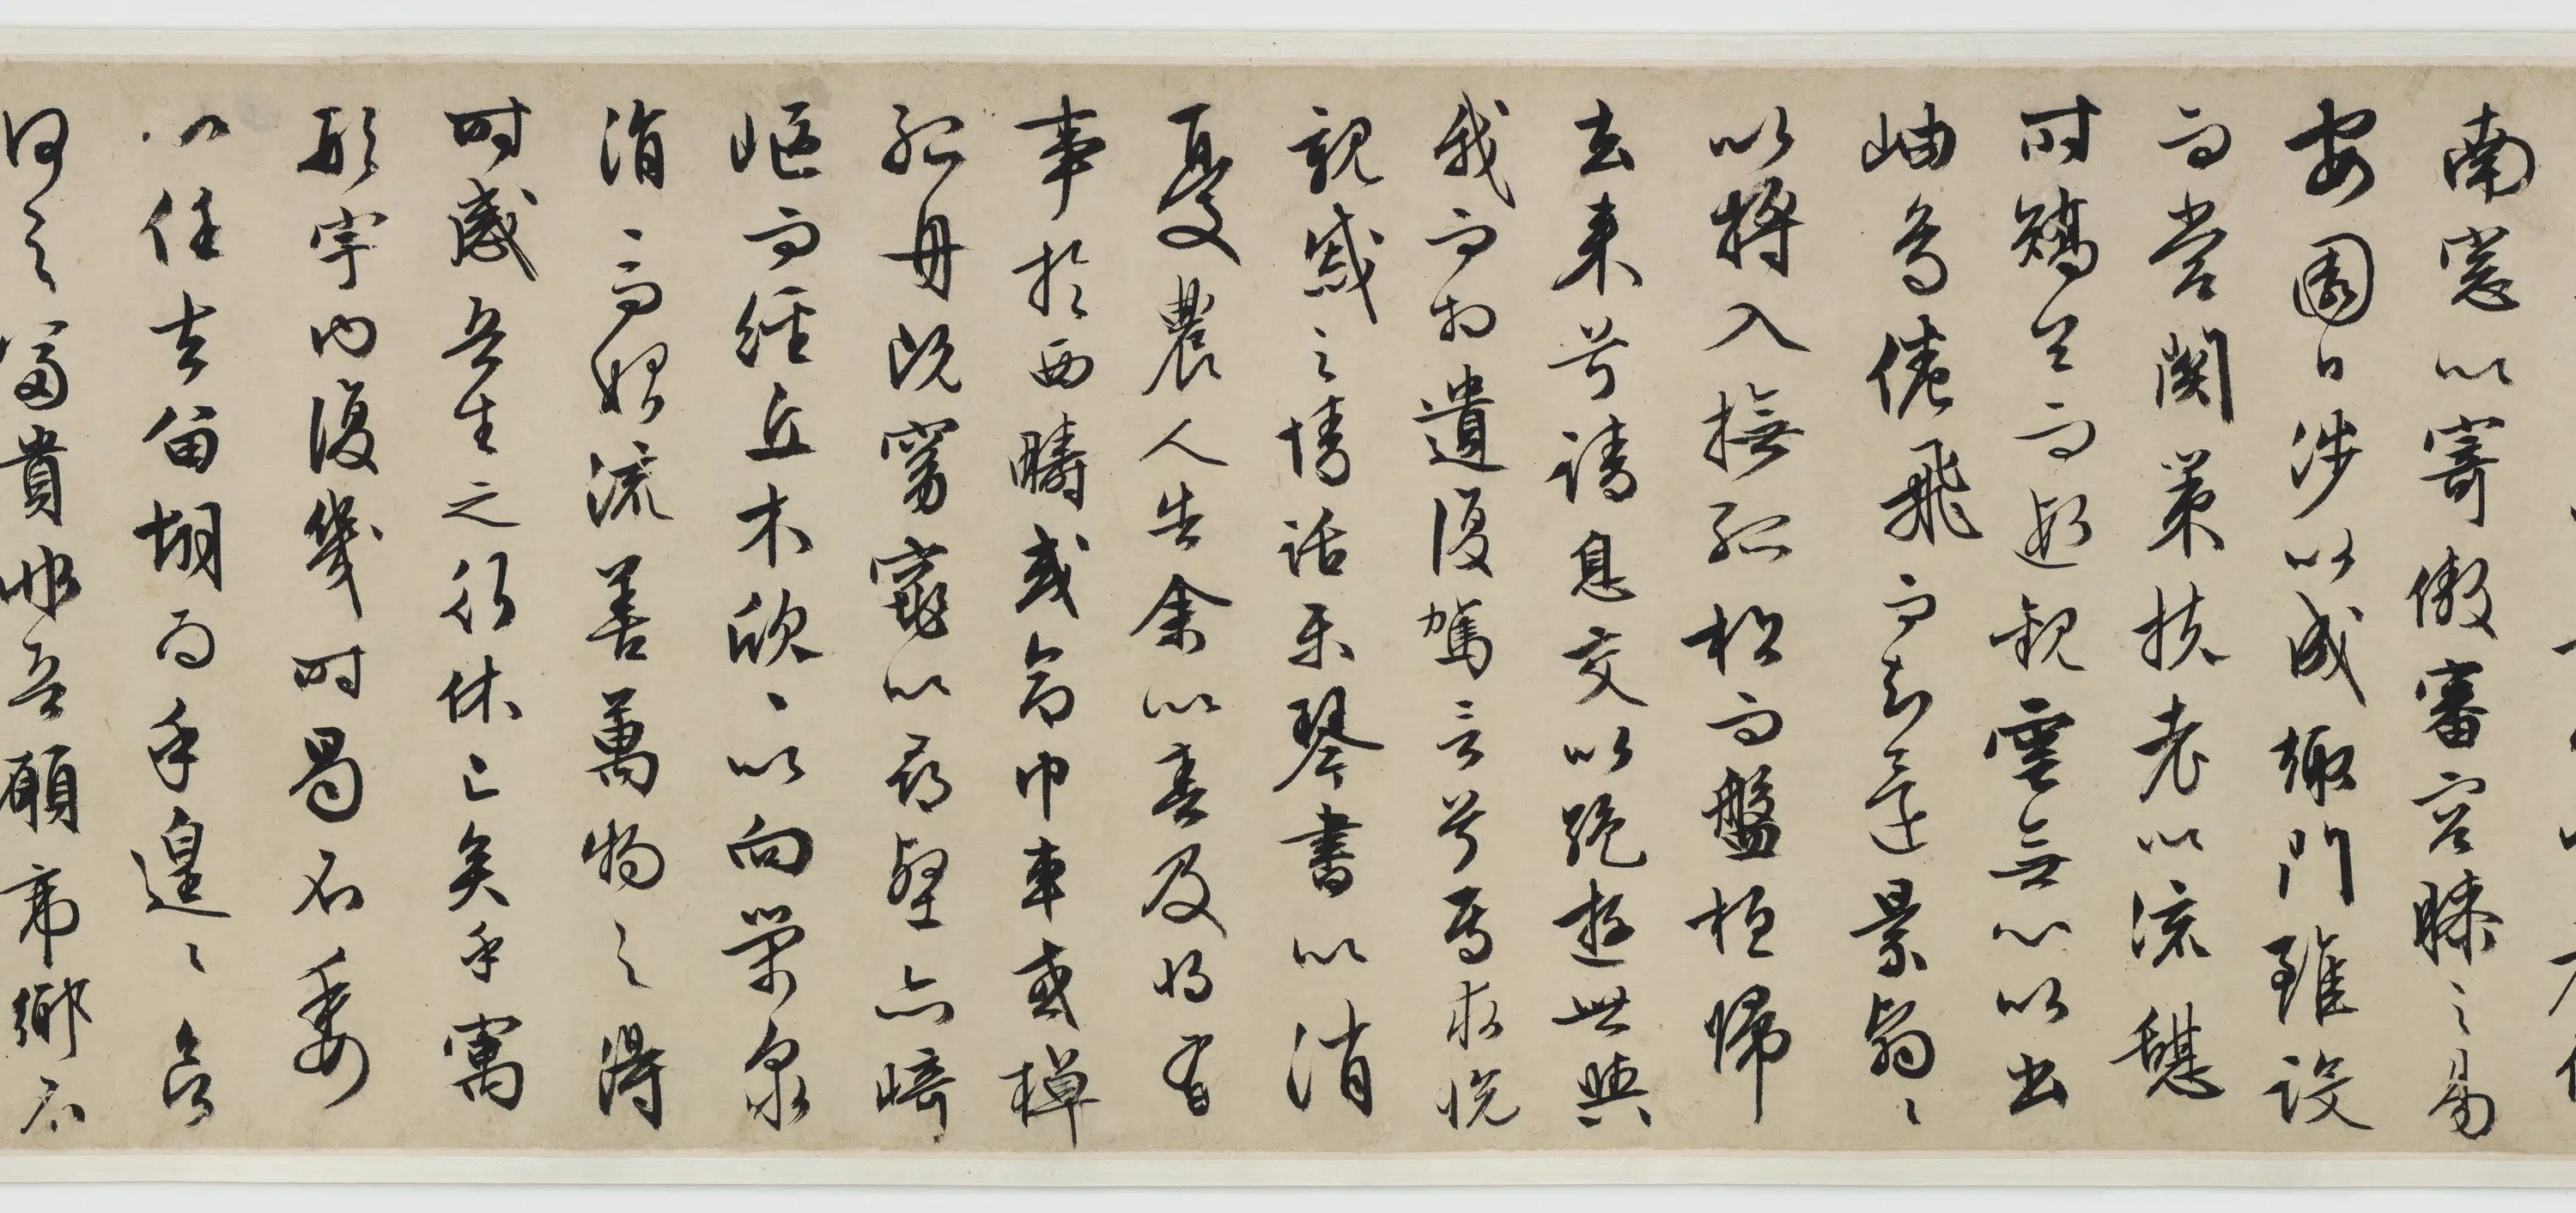 南窓以寄傲審容膝之易
安園日涉以成趣門雖設
而常關策扶老以流憩
時矯首而遐觀雲無心以出
岫鳥倦飛而知還景翳〻
以將入撫孤松而盤桓歸
去来兮請息交以絶遊世與
我而相遺復駕言兮焉求悅
親戚之情話樂琴書以消
憂農人告余以春及將有
事於西疇或命巾車或棹
孤舟既窈窕以尋壑亦崎
嶇而經丘木欣〻以向榮泉
涓〻而始流善萬物之得
時感吾生之行休已矣乎寓
形宇内復幾時曷不委
心任去留胡為乎遑〻欲
何之富貴非吾願帝鄉不